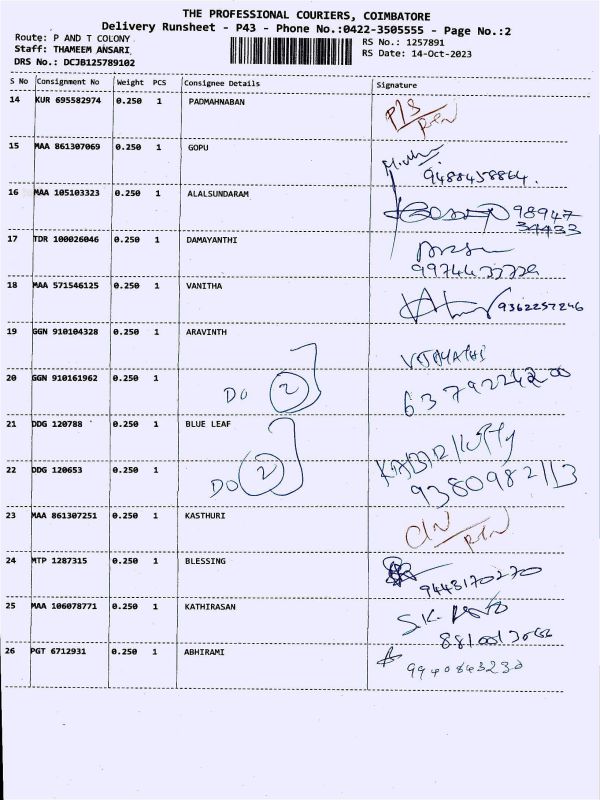 THE PROFESSIONAL COURIERS, COIMBATORE
Delivery Runsheet - P43 - Phone No.:0422-3505555 - Page No.:2
Route: P AND T COLONY
Staff: THAMEEM ANSARI.
DRS No.: DCJB125789102
RS No.: 1257891
RS Date: 14-Oct-2023
S No Consignment No Weight PCS Consignee Details Signature
14 KUR 695582974 0.250 1 PADMAHNABAN
15 MAA 861307069 0.250 1 GOPU
9488458864.
16 MAA 105103323 0.250 1 ALALSUNDARAM
98947
34433
17 TDR 100026046 0.250 1 DAMAYANTHI
18 MAA 571546125 0.250 1 VANITHA
9362257246
19 GGN 910104328 0.250 1 ARAVINTH
20 GGN 910161962 0.250 1 DO 2
21 DDG 120788 0.250 1 BLUE LEAF
22 DDG 120653 0.250 1 DO 2
9380982113
23 MAA 861307251 0.250 1 KASTHURI
24 MTP 1287315 0.250 1 BLESSING
9443170270
25 MAA 106078771 0.250 1 KATHIRASAN
S.K.
26 PGT 6712931 0.250 1 ABHIRAMI
9940843230